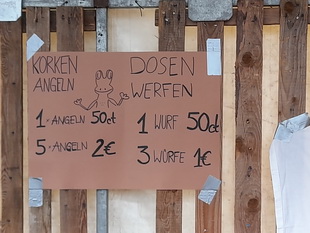 KORKEN
ANGELN
1 × ANGELN 50ct
5 × ANGELN 2€
DOSEN
WERFEN
1 WURF 50ct
3 WÜRFE 1€